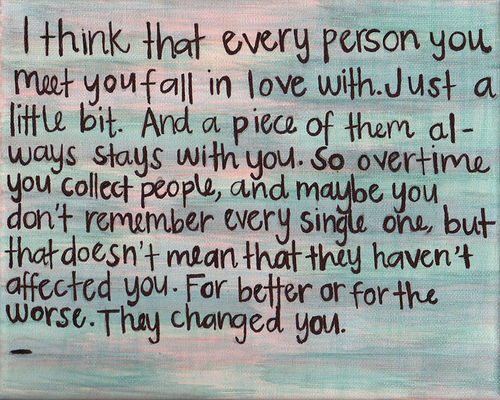 I think that every person you
meet you fall in love with. Just a
little bit. And a piece of them al-
ways stays with you. So overtime
you collect people, and maybe you
don't remember every single one, but
that doesn't mean that they haven't
affected you. For better or for the
worse. They changed you.
-